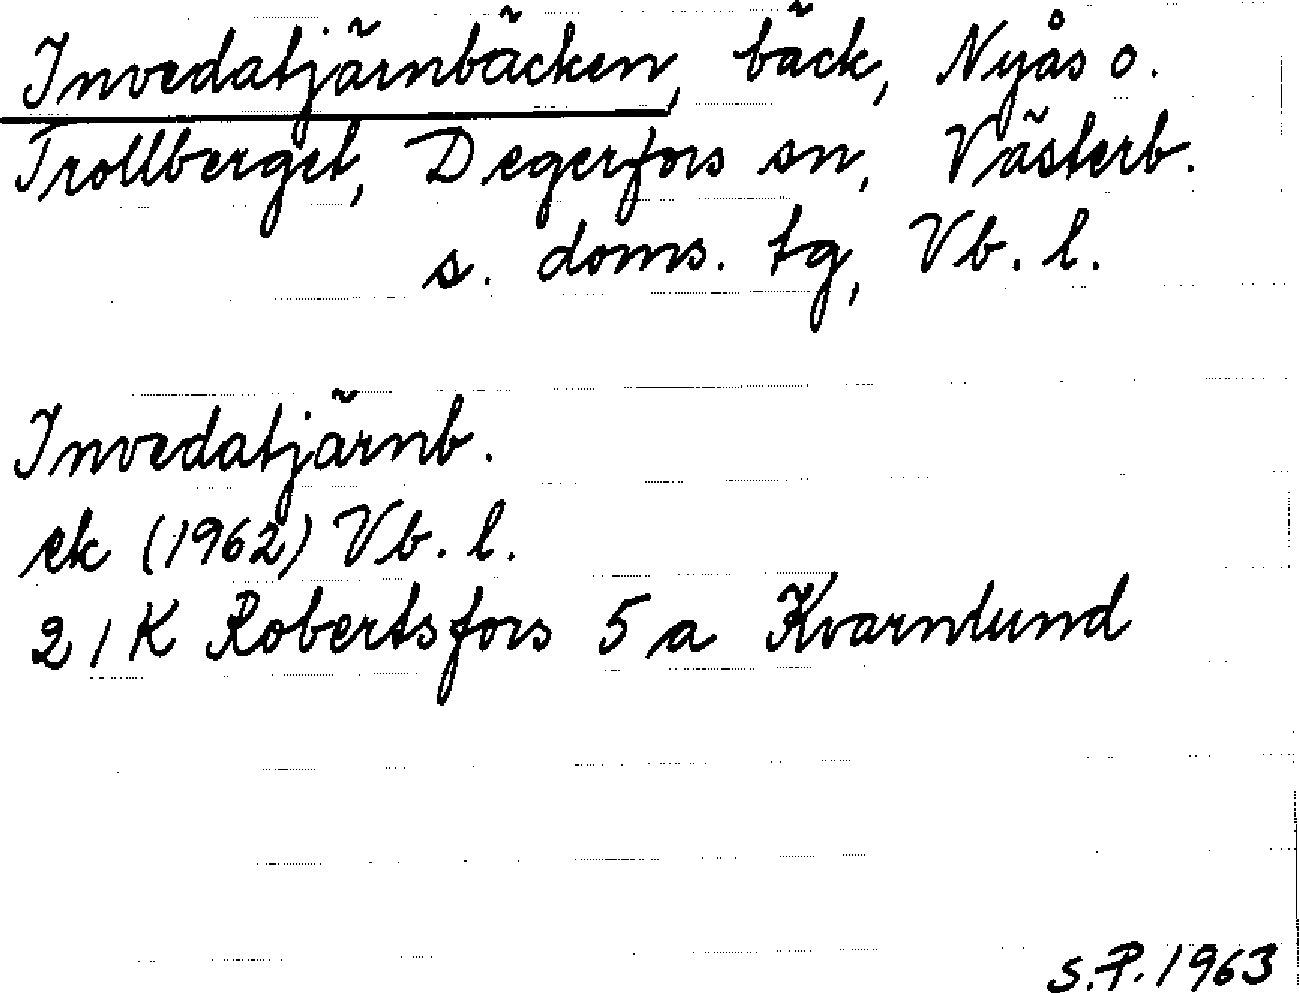 Invedatjärnbäcken, bäck, Nyås o.
Trollberget, Degerfors sn, Västerb.
s. doms. tg, Vb. l.
Invedatjärnb.
ek (1962) Vb. l.
21K Robertsfors 5 a Kvarnlund
S.P. 1963